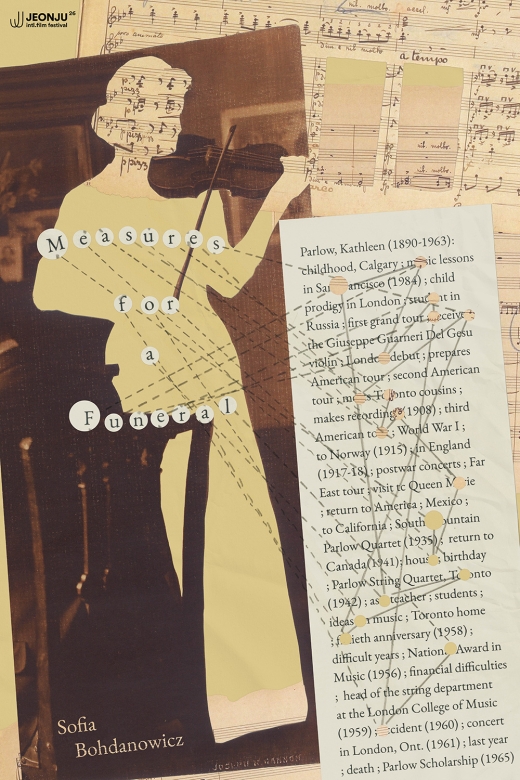 JEONJU 26
intl.film festival
poco animato
a tempo
Measures
for
a
Funeral
Parlow, Kathleen (1890-1963):
childhood, Calgary ; music lessons
in San Francisco (1984) ; child
prodigy in London ; student in
Russia ; first grand tour ; receives
the Giuseppe Guarneri Del Gesu
violin ; London debut ; prepares
American tour ; second American
tour ; Toronto cousins ;
makes recordings (1908) ; third
American to ; World War I ;
to Norway (1915) ; in England
(1917-18) ; postwar concerts ; Far
East tour ; visit to Queen Marie
; return to America ; Mexico ;
to California ; South Mountain
Parlow Quartet (1935) ; return to
Canada(1941); house ; birthday
; Parlow String Quartet, Toronto
(1942) ; as teacher ; students ;
ideas on music ; Toronto home
; fiftieth anniversary (1958) ;
difficult years ; National Award in
Music (1956) ; financial difficulties
; head of the string department
at the London College of Music
(1959) ; accident (1960) ; concert
in London, Ont. (1961) ; last year
; death ; Parlow Scholarship (1965)
Sofia
Bohdanowicz